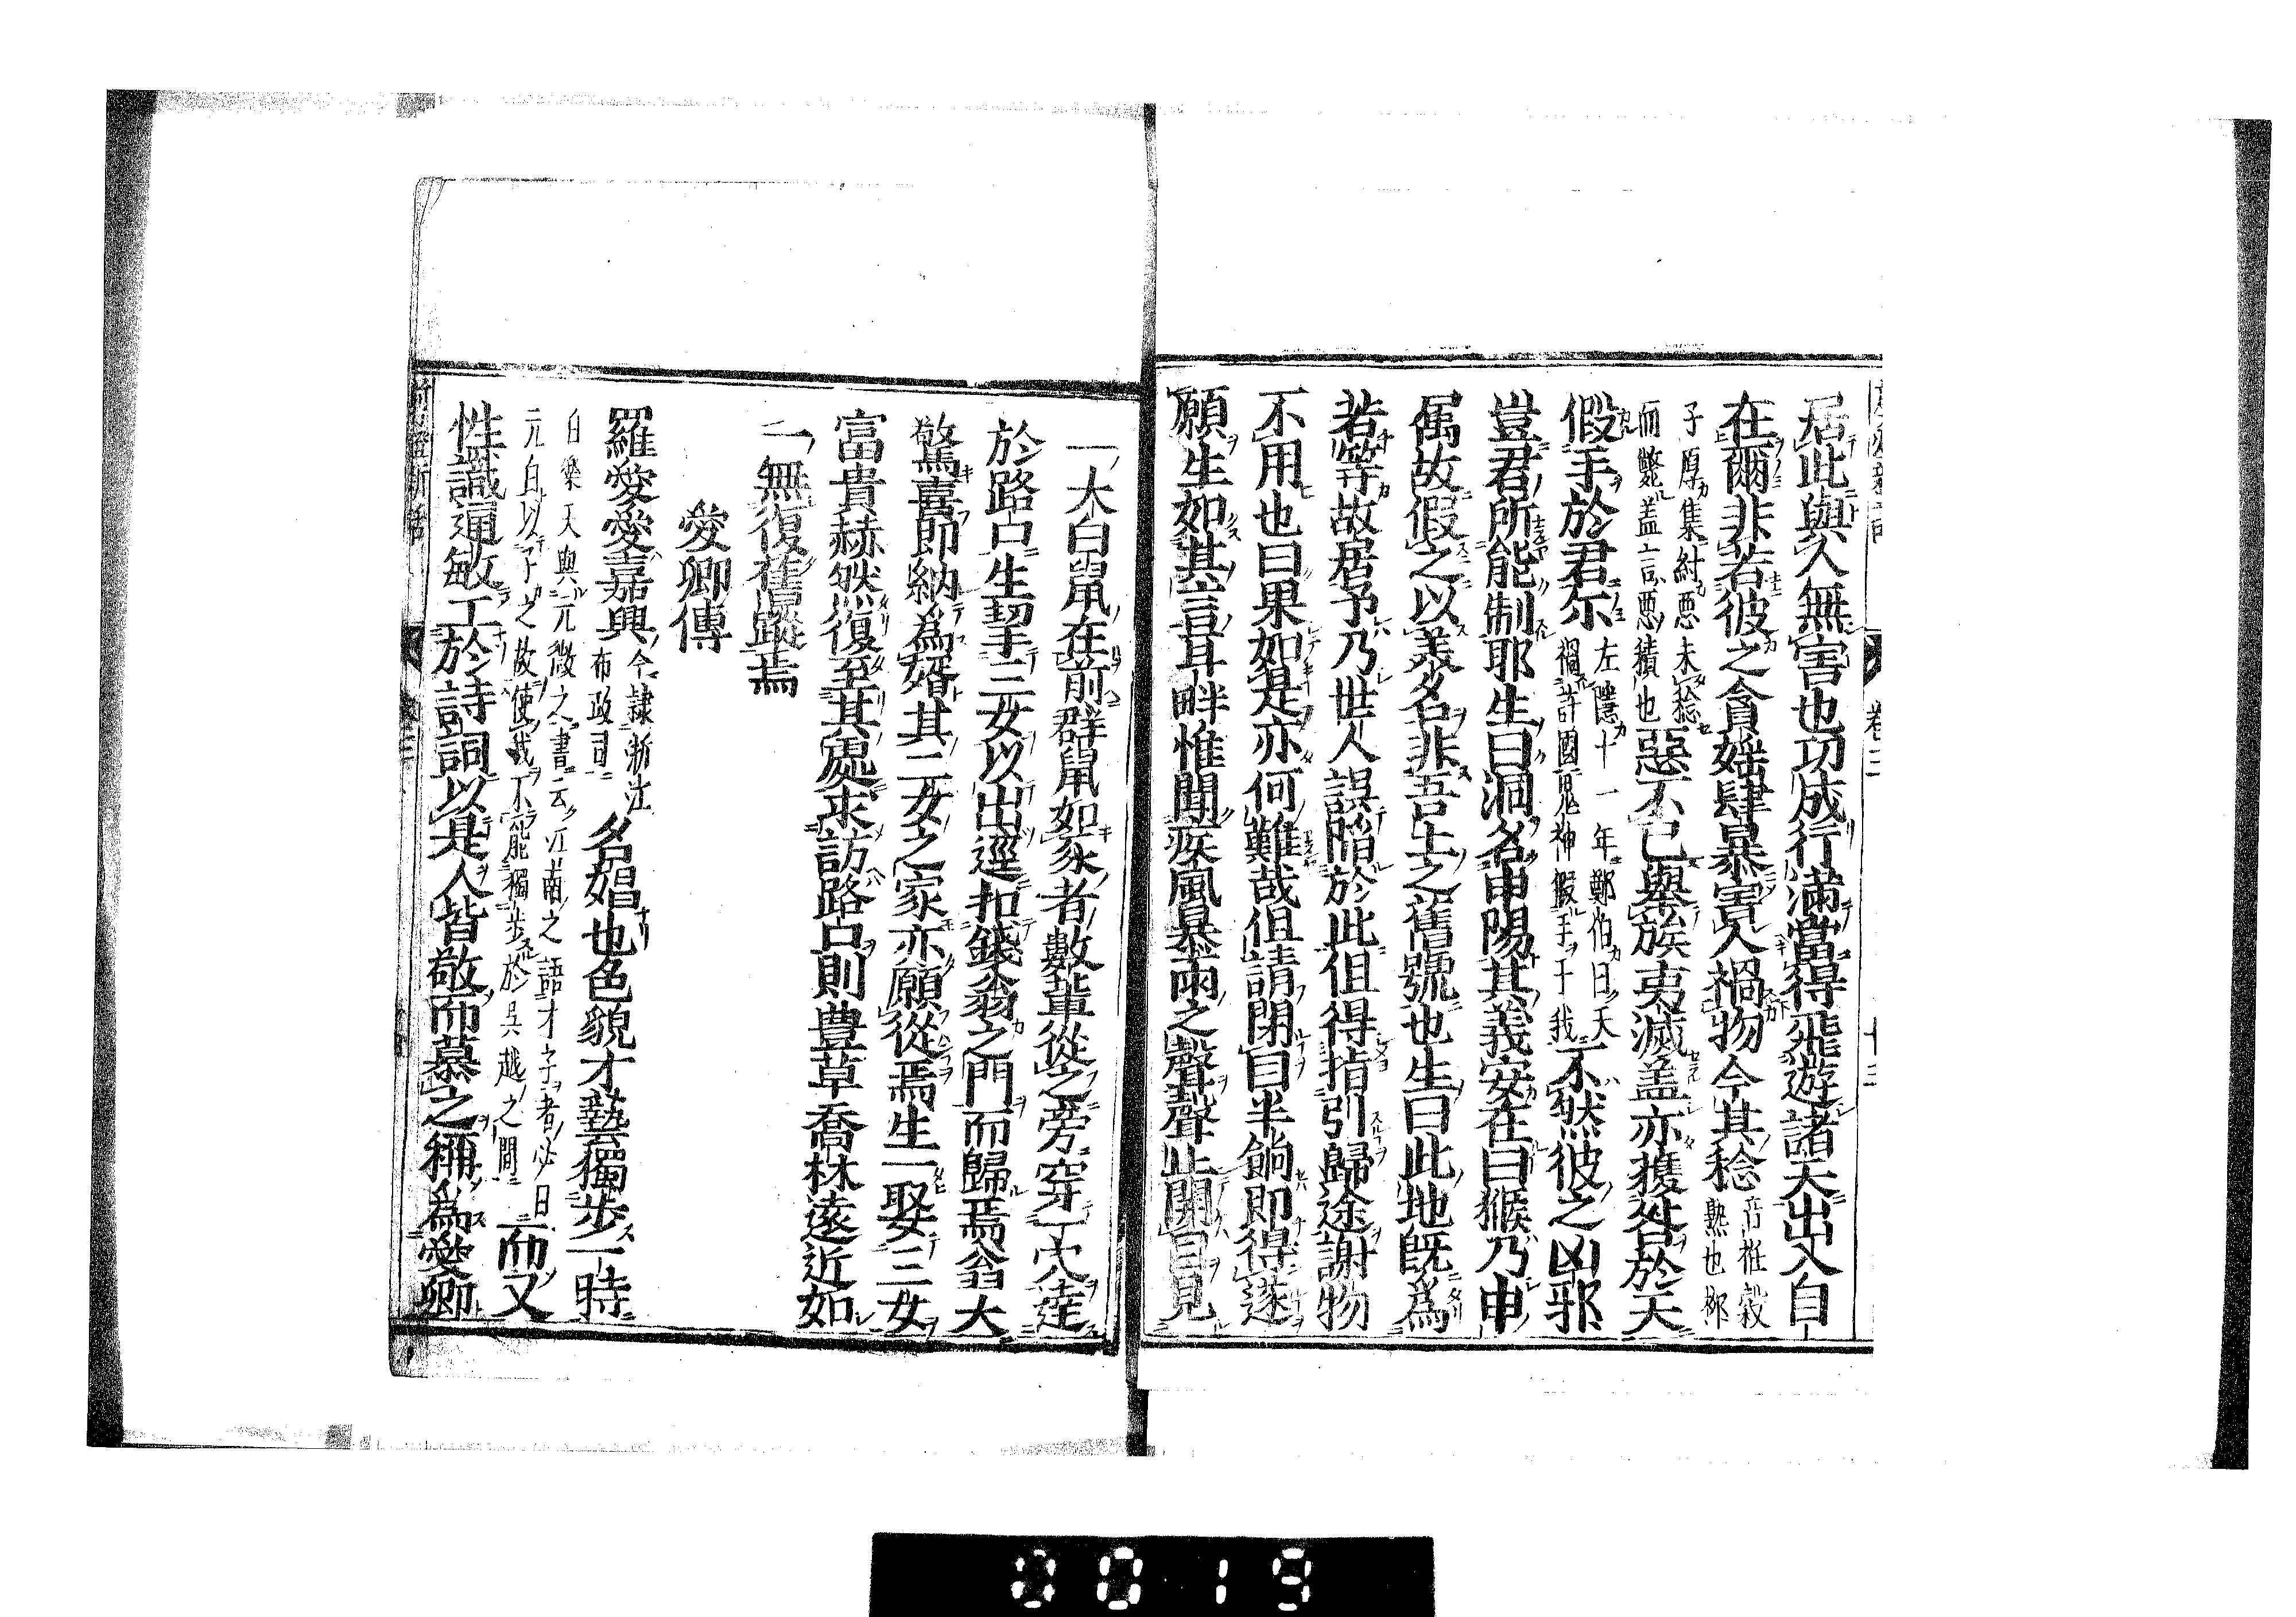 居此與人無害也功成行滿當得飛遊諸天出入自
在爾非若彼之貪婬肆暴害人禍物今其稔
音稔穀
熟也鄭
子厚集紂惡未稔
而斃盖言惡積也
惡不已舉族夷滅盖亦獲咎於天
假手於君尓
左隱十一年鄭伯曰天
禍許國鬼神假手于我
不然彼之凶邪
豈君所能制耶生曰洞名申陽其義安在曰猴乃申
属故假之以美名非吾土之舊號也生曰此地既爲
若等故居予乃世人誤陷於此但得指引歸途謝物
不用也曰果如是亦何難哉但請閉目半餉即得遂
願生如其言耳畔惟聞疾風暴雨之聲聲止開目見
一大白鼠在前群鼠如豕者數輩從之旁穿一穴達
於路口生挈三女以出逕扣錢翁之門而歸焉翁大
驚喜即納爲婿其二女之家亦願從焉生一娶三女
富貴赫然復至其處求訪路口則豊草喬林遠近如
一無復舊蹤焉
愛卿傳
羅愛愛嘉興
今隷浙江
布政司
名娼也色貌才藝獨步一時
白樂天與元微之書云江南之語才子者必曰
元白以子之故使我不能獨步於吳越之間
而又
性識通敏工於詩詞以是人皆敬而慕之稱爲愛卿
0019